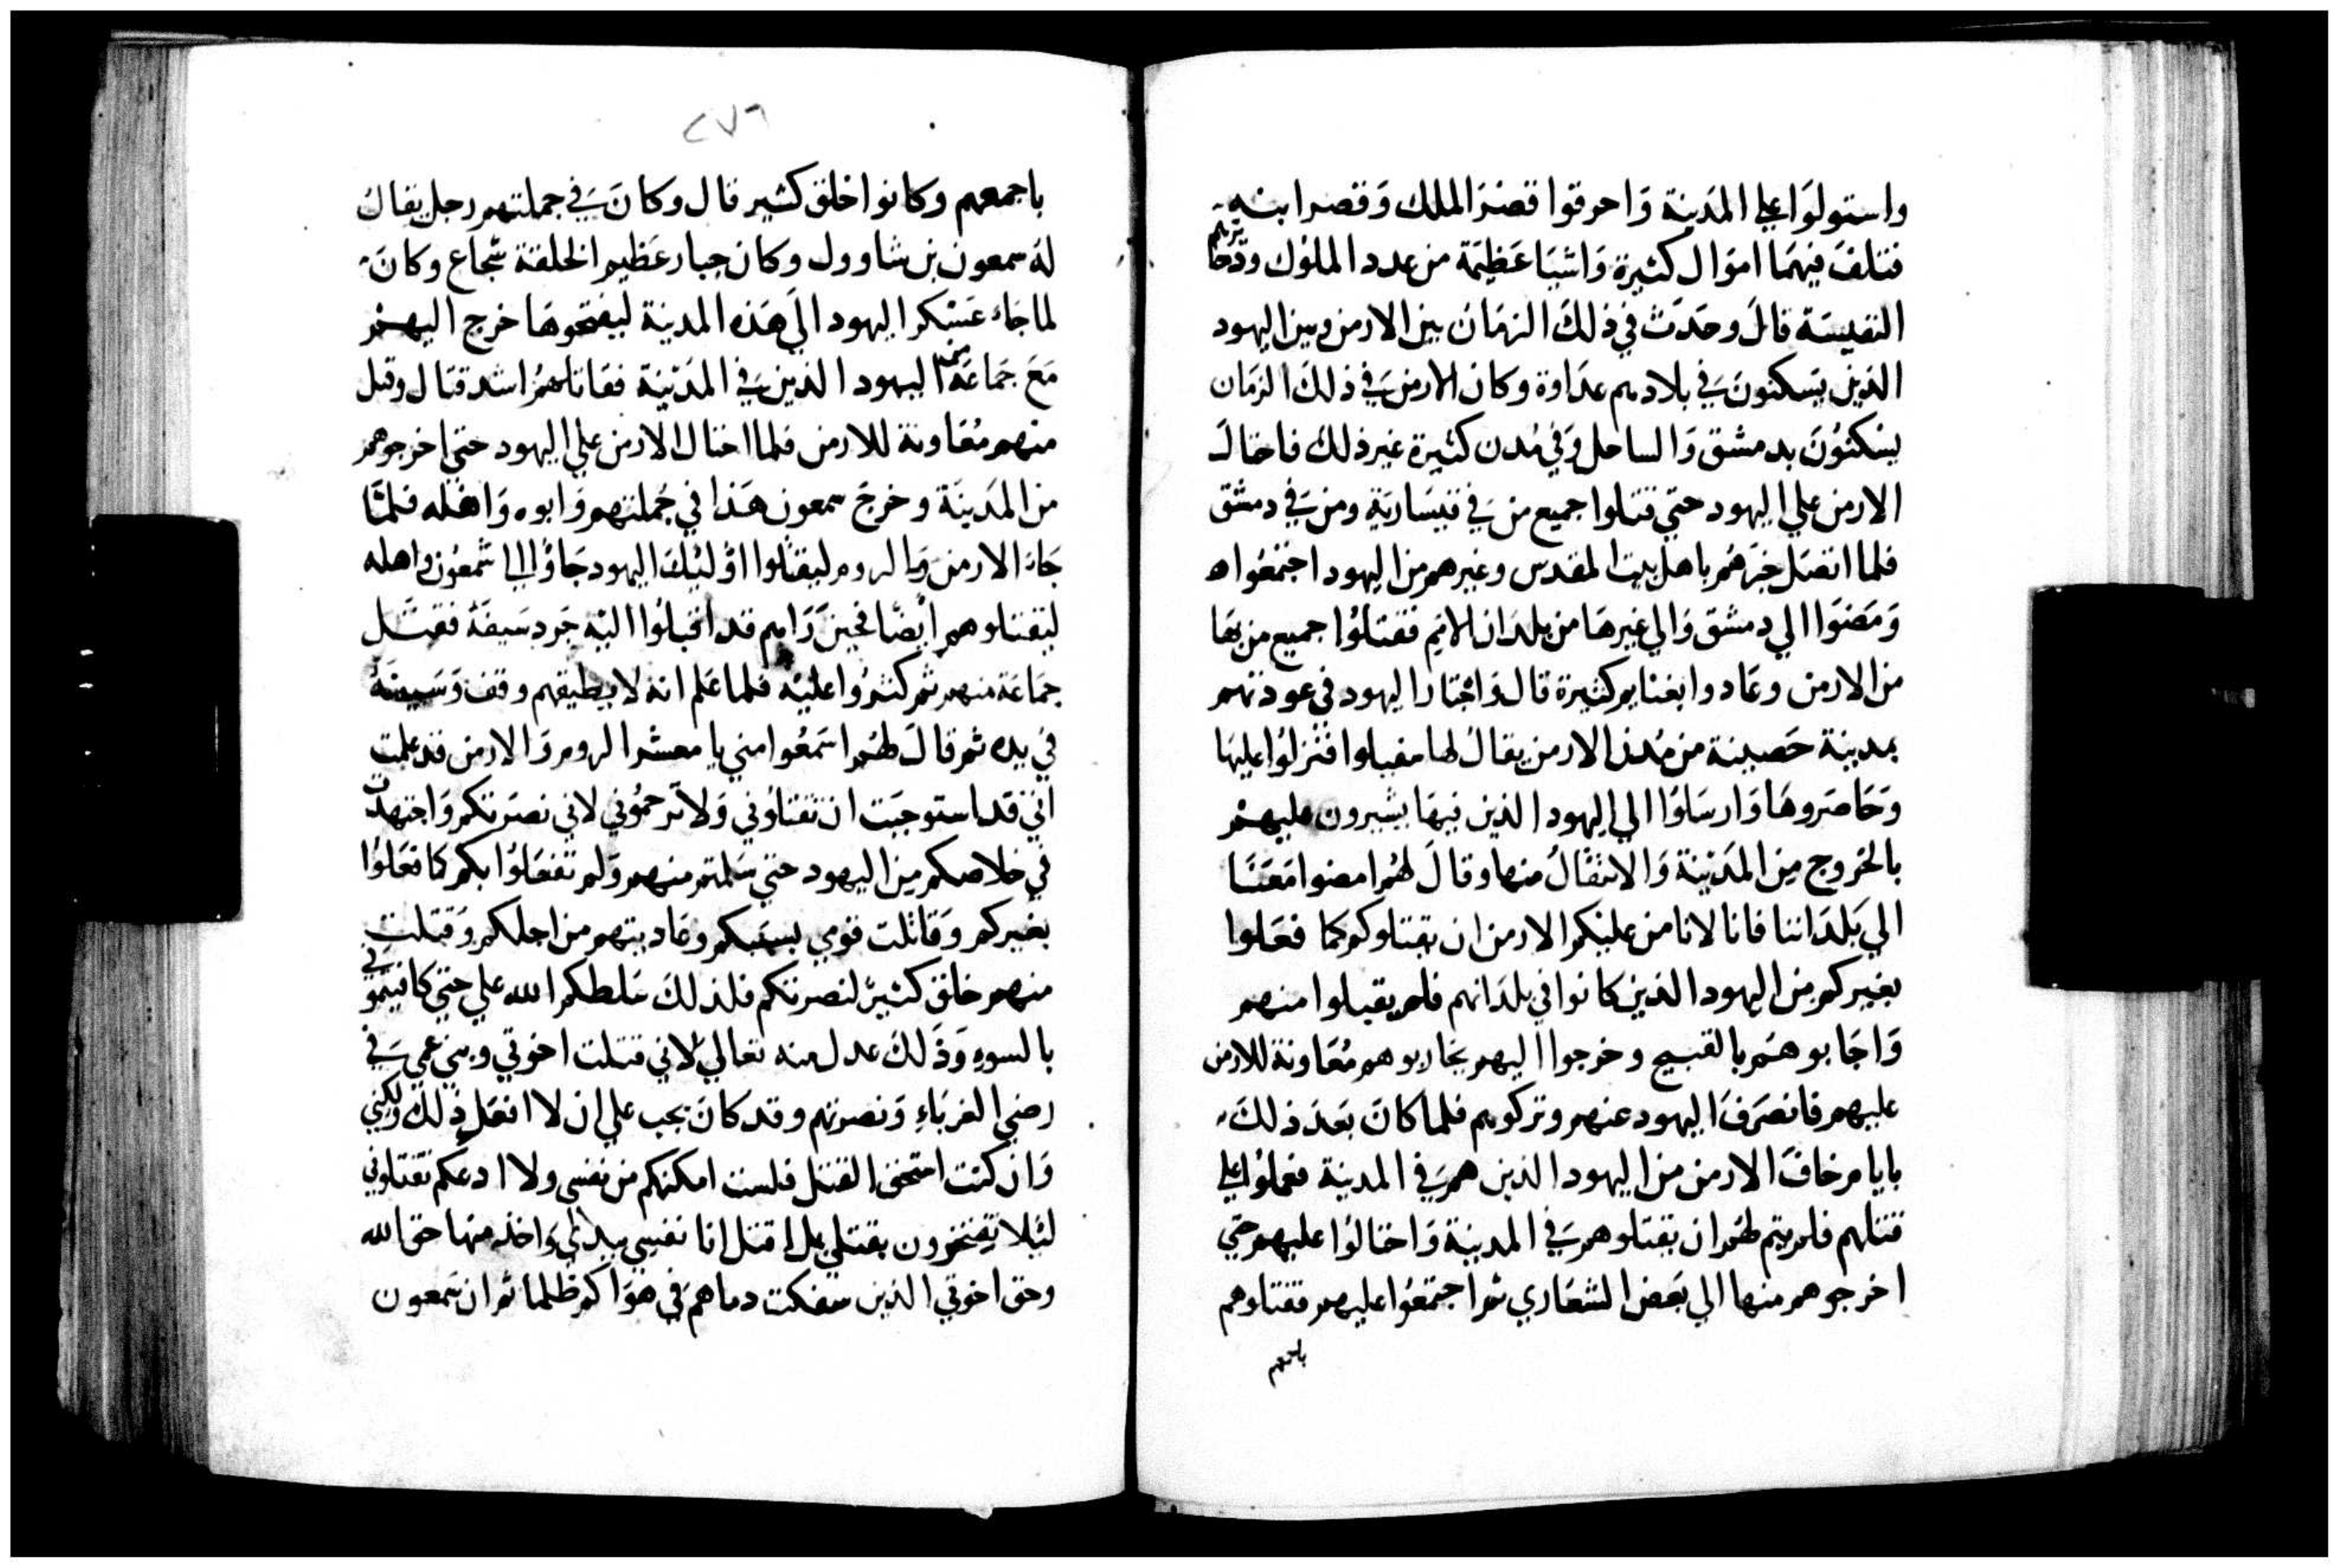 واستولوا علي المدينة واحرقوا قصر الملك وقصر ابنه
فتلف فيهما اموال كثيرة واشيا عظيمة من عدد الملوك وذخايرهم
النفيسة قال وحدث في ذلك الزمان بين الارمن وبين اليهود
الذين يسكنون في بلادهم عداوة وكان الارمن في ذلك الزمان
يسكنون بدمشق والساحل وفي مدن كثيرة غير ذلك فاحتال
الارمن علي اليهود حتي قتلوا جميع من في قيسارية ومن في دمشق
فلما اتصل خبرهم باهل بيت المقدس وغيرهم من اليهود اجتمعوا
ومضوا الي دمشق والي غيرها من بلدان الارمن فقتلوا جميع من بها
من الارمن وعادوا بغنايم كثيرة قال واجتازا اليهود في عودتهم
بمدينة حصينة من مدن الارمن يقال لها فنزلوا عليها
وحاصروها وارسلوا الي اليهود الذين فيها يشيرون عليهم
بالخروج من المدينة والانتقال منها وقال لهم امضوا معنا
الي بلداننا فانا لا نامن عليكم الارمن ان يقتلوكم كما فعلوا
بغيركم من اليهود الذين كانوا في بلدانهم فلم يقبلوا منهم
واجابوهم بالقبيح وخرجوا اليهم يحاربوهم معاونة للارمن
عليهم فانصرف اليهود عنهم وتركوهم فلما كان بعد ذلك
بايام خاف الارمن من اليهود الذين هم في المدينة فعملوا علي
قتلهم فلم يتم لهم ان يقتلوهم في المدينة واحتالوا عليهم حتي
اخرجوهم منها الي بعض الشعاري ثم اجتمعوا عليهم فقتلوهم
باجمعهم
٢٧٦
باجمعهم وكانوا خلق كثير قال وكان في جملتهم رجل يقال
له سمعون بن شاوول وكان جبار عظيم الخلقة شجاع وكان
لما جاء عسكر اليهود الي هذه المدينة ليفتحوها خرج اليهم
مع جماعة من اليهود الذين في المدينة فقاتلهم اشد قتال وقتل
منهم معاونة للارمن فلما احتال الارمن علي اليهود حتي اخرجوهم
من المدينة وخرج سمعون هذا في جملتهم وابوه واهله فلما
جاء الارمن والروم ليقتلوا اوليك اليهود جاوا الي شمعون واهله
ليقتلوهم ايضا فحين راهم قد اقبلوا اليه جرد سيفه فقتل
جماعة منهم ثم كثروا عليه فلما علم انه لا يطيقهم وقف وسيفه
في يده ثم قال لهم اسمعوا مني يا معشر الروم والارمن قد علمت
انني قد استوجبت ان تقتلوني ولا ترحموني لاني نصرتكم واجتهدت
في خلاصكم من اليهود حتي سلمتم منهم ولم تفعلوا بكم كما فعلوا
بغيركم وقاتلت قومي بسببكم وعاديتهم من اجلكم وقتلت
منهم خلق كثير لنصرتكم فلذلك سلطكم الله علي حتي كافيتموني
بالسوء وذلك عدل منه تعالي لاني قتلت اخوتي وبني عمي في
رضي الغرباء ونصرتهم وقد كان يجب علي ان لا افعل ذلك ولكني
وان كنت استحق القتل فلست امكنكم من نفسي ولا ادعكم تقتلوني
ليلا تفتخرون بقتلي بل اقتل انا نفسي بيدي واخذ منها حق الله
وحق اخوتي الذين سفكت دماهم في هواكم ظلما ثم ان شمعون